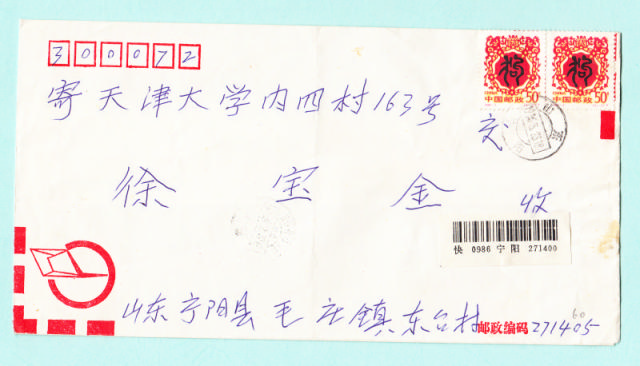 300072
狗 狗
中国邮政 50分 中国邮政 50分
寄天津大学内四村163号
交
徐宝金 收
快 0986 宁阳 271400
山东宁阳县毛庄镇东台村
邮政编码 271405
60